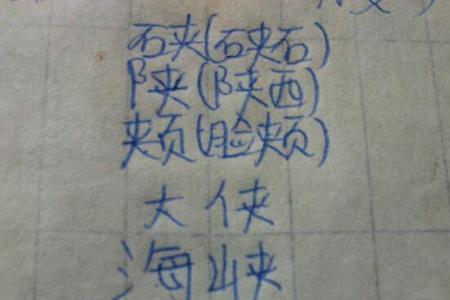 硖(硖石)
陕(陕西)
颊(脸颊)
大侠
海峡